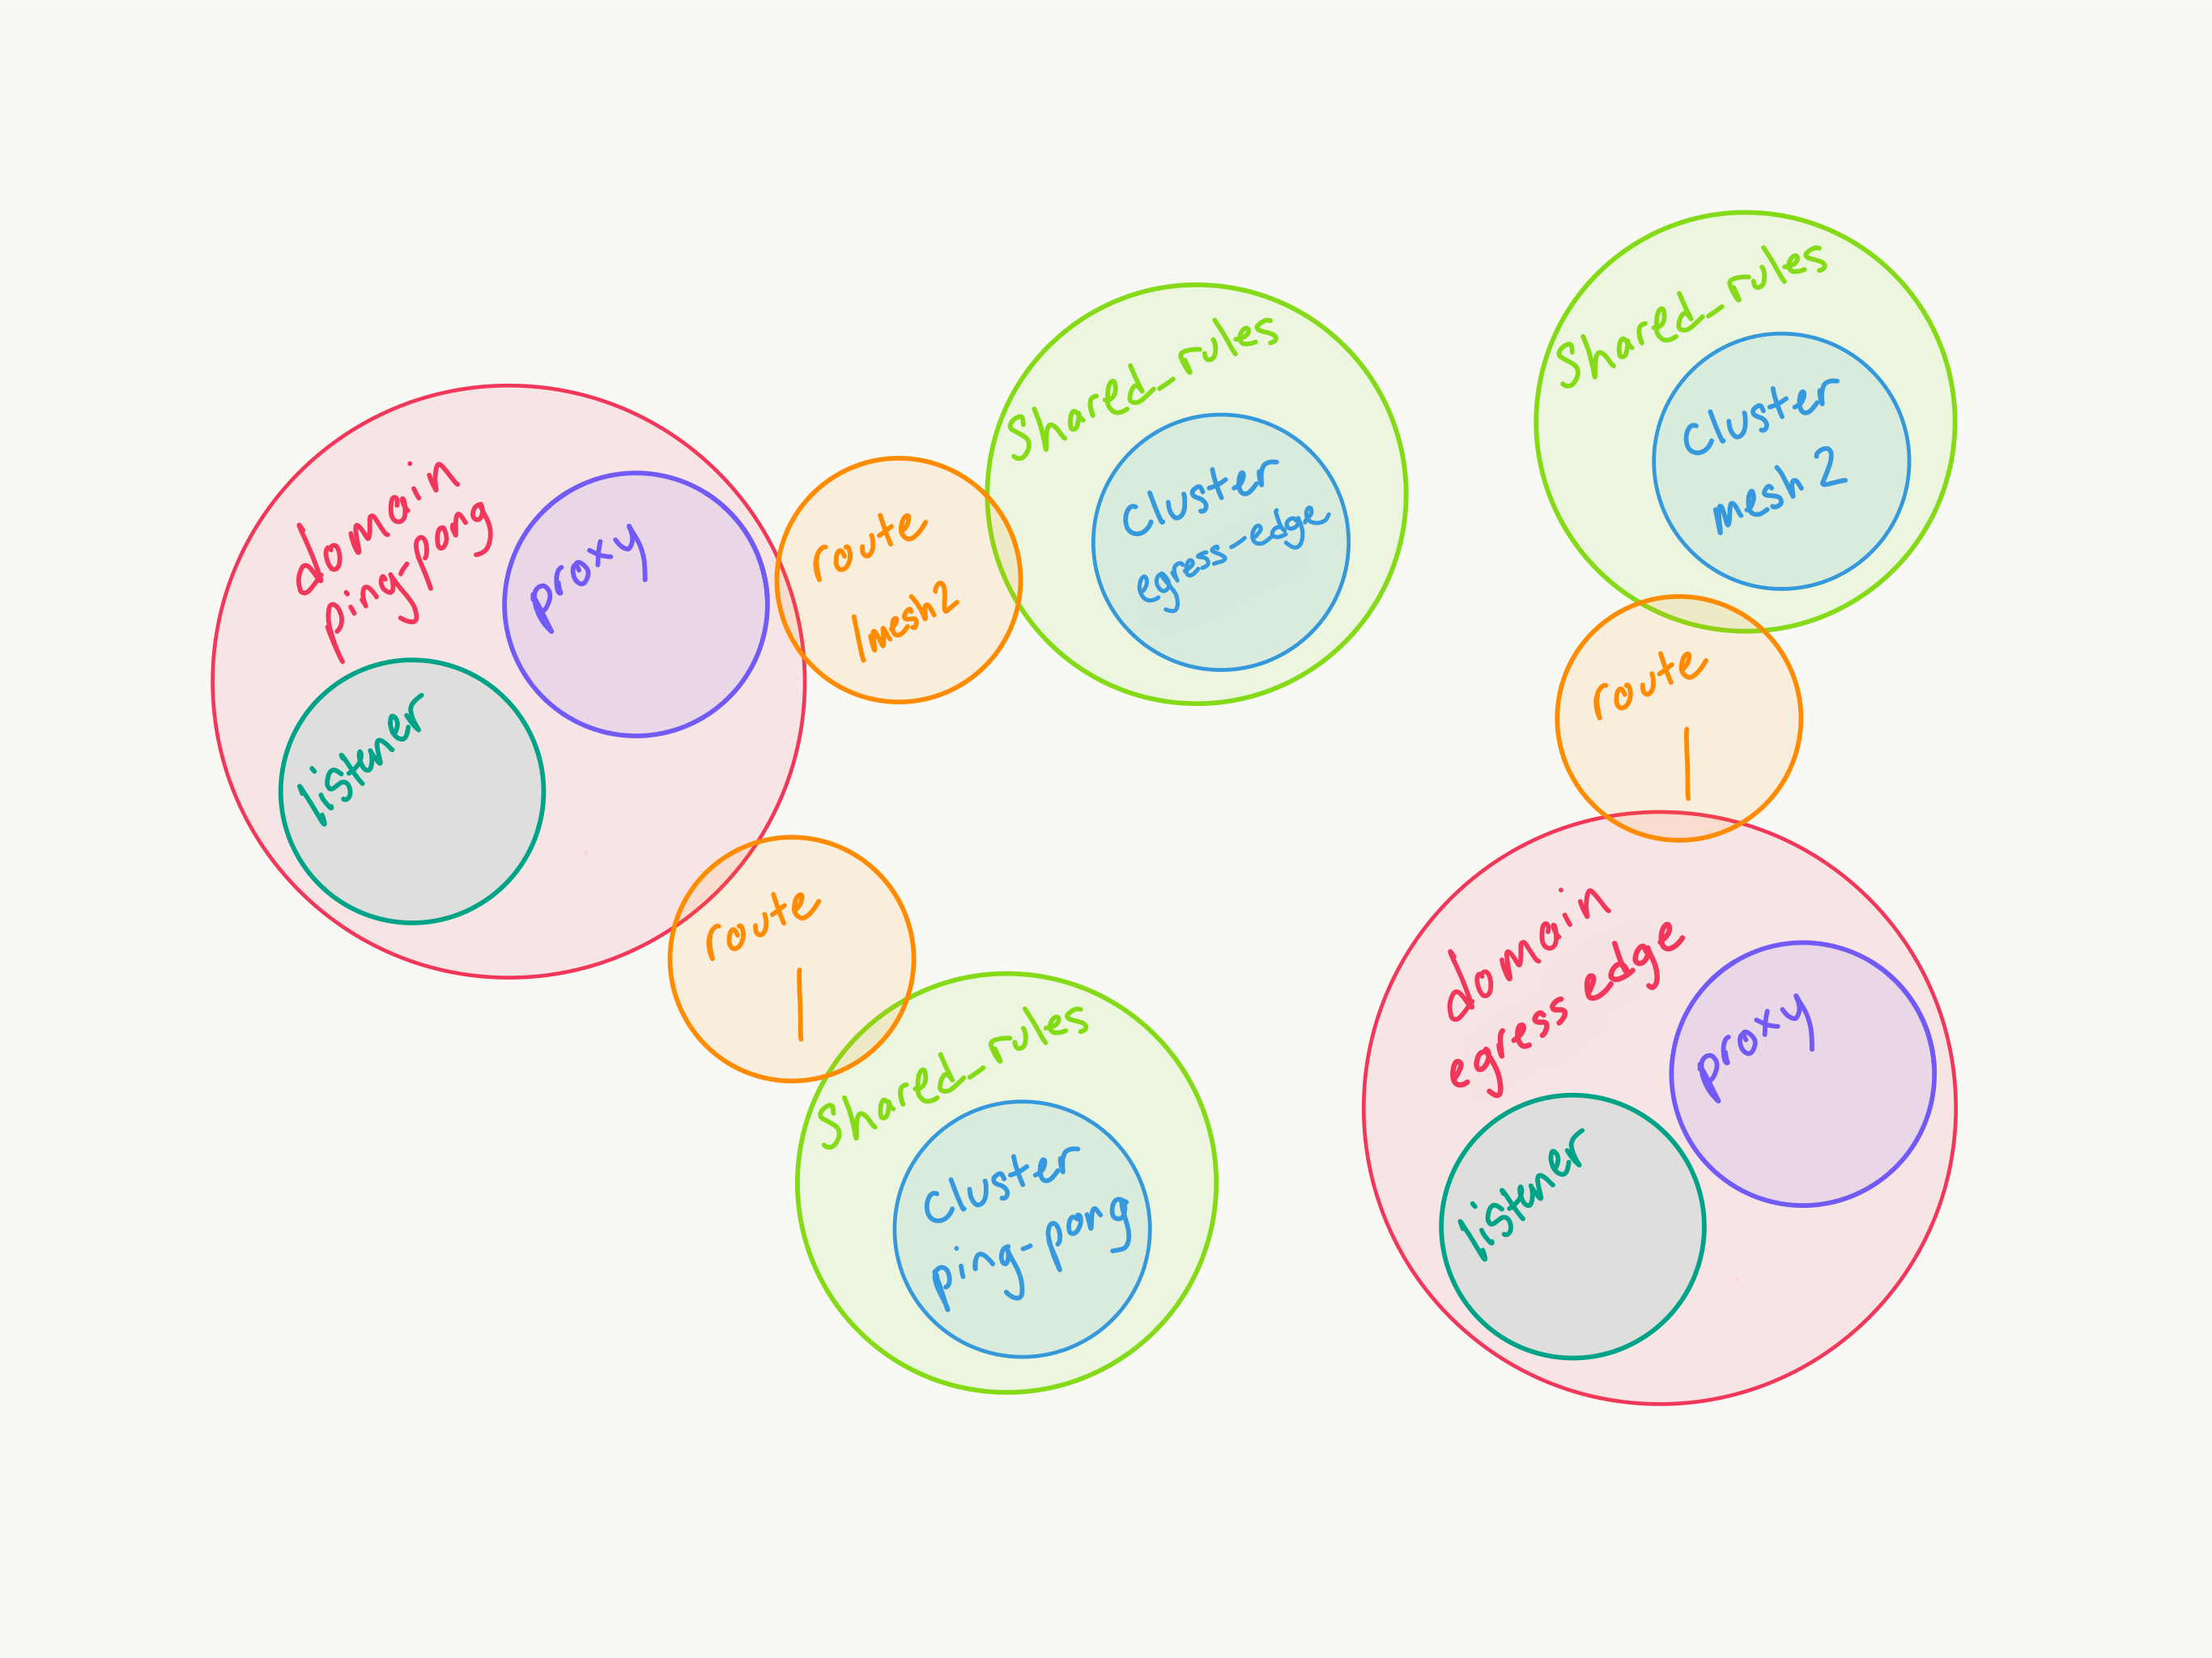 domain
ping-pong
proxy
listener
route
/mesh2
shared_rules
cluster
egress-edge
route
/
shared_rules
cluster
ping-pong
shared_rules
cluster
mesh 2
route
/
domain
egress edge
proxy
listener